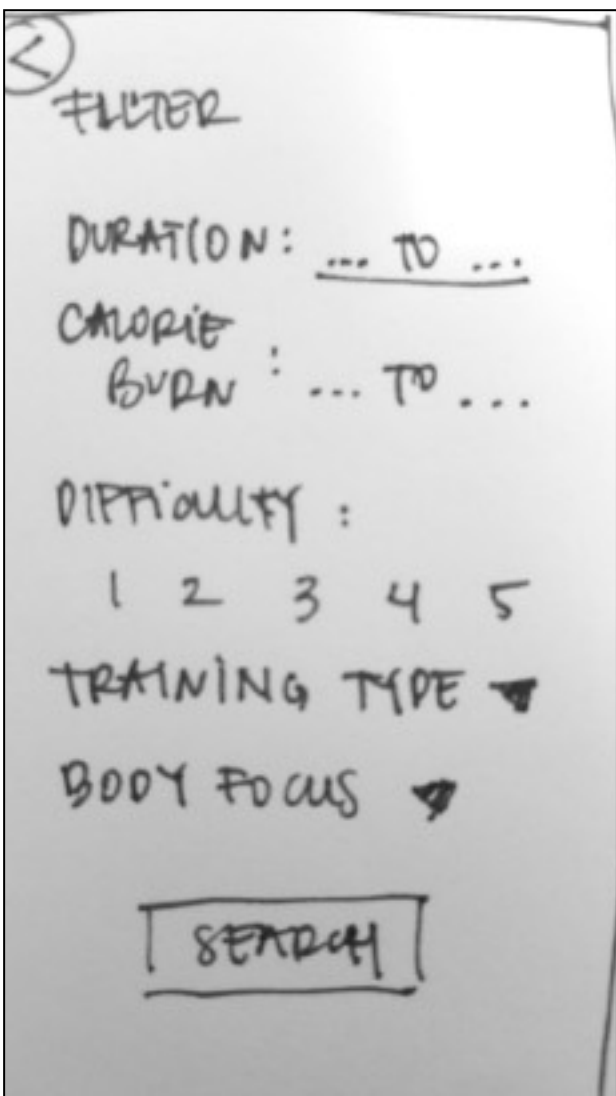 <
FILTER
DURATION: ... TO ...
CALORIE
BURN : ... TO ...
DIFFICULTY :
1 2 3 4 5
TRAINING TYPE
BODY FOCUS
SEARCH